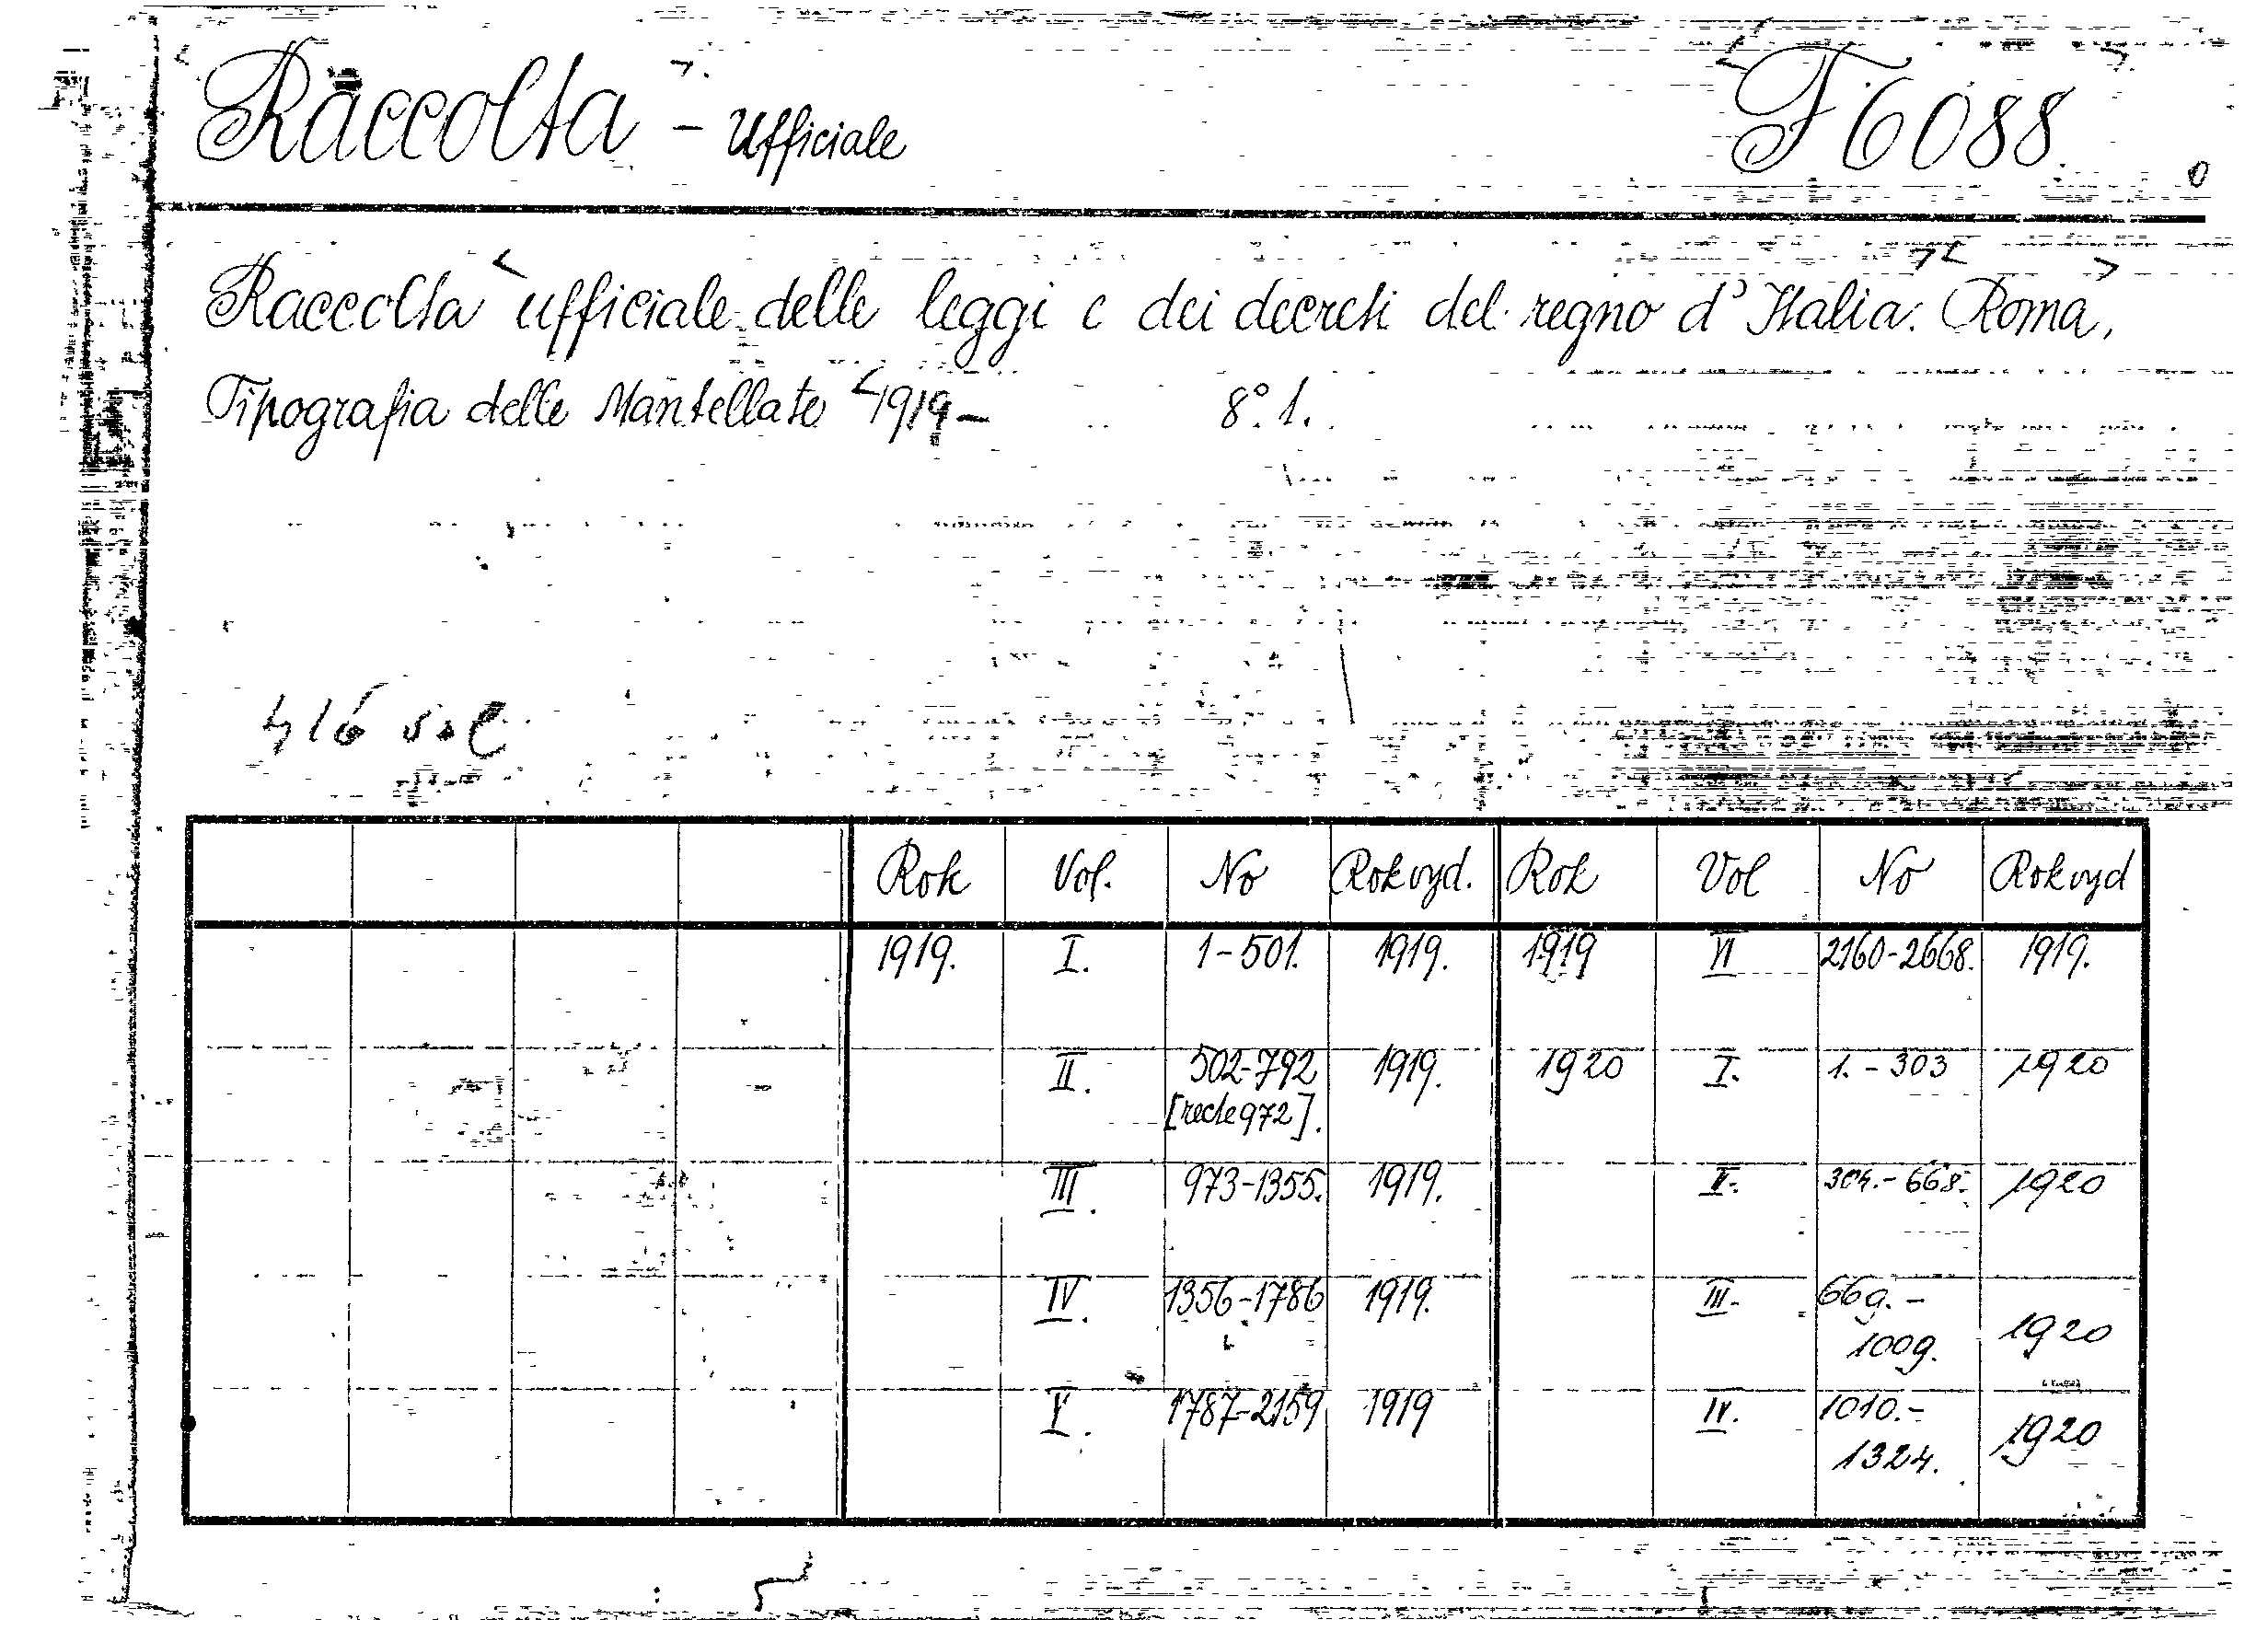 Raccolta - Ufficiale F 6088.
Raccolta ufficiale delle leggi e dei decreti del regno d'Italia. Roma,
Tipografia delle Mantellate 1919- 8° 1.
416 vol
Rok Vol. No Rok vyd. Rok Vol No Rok vyd
1919. I. 1-501. 1919. 1919 VI 2160-2668. 1919.
II. 502-792 1919. 1920 I. 1.-303 1920
[recte 972].
III. 973-1355. 1919. II. 304.-668. 1920
IV. 1356-1786 1919. III. 669.-
1009. 1920
V. 1787-2159 1919 IV. 1010.-
1324. 1920